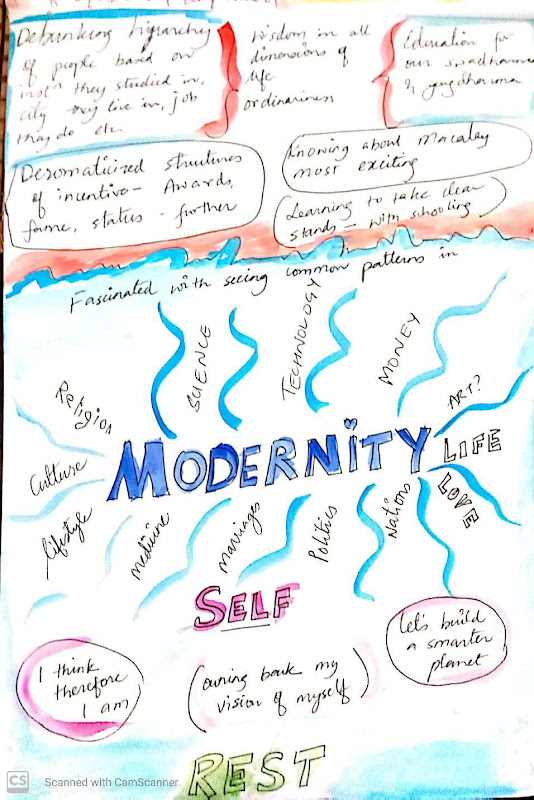 Debunking hierarchy
of people based on
instn they studied in,
city they live in, job
they do etc
Wisdom in all
dimensions of
life
ordinariness
Education for
our swadharma
& yugdharma
Deromaticized structures
of incentive- Awards,
fame, status - further
Knowing about Macaulay
most exciting
Learning to take clear
stands - with schooling
Fascinated with seeing common patterns in
SCIENCE
TECHNOLOGY
MONEY
ART?
Religion
MODERNITY
LIFE
Culture
LOVE
lifestyle
Medicine
Marriages
Politics
Nations
SELF
I think
therefore
I am
(owning back my
vision of myself)
let's build
a smarter
planet
REST
CS Scanned with CamScanner